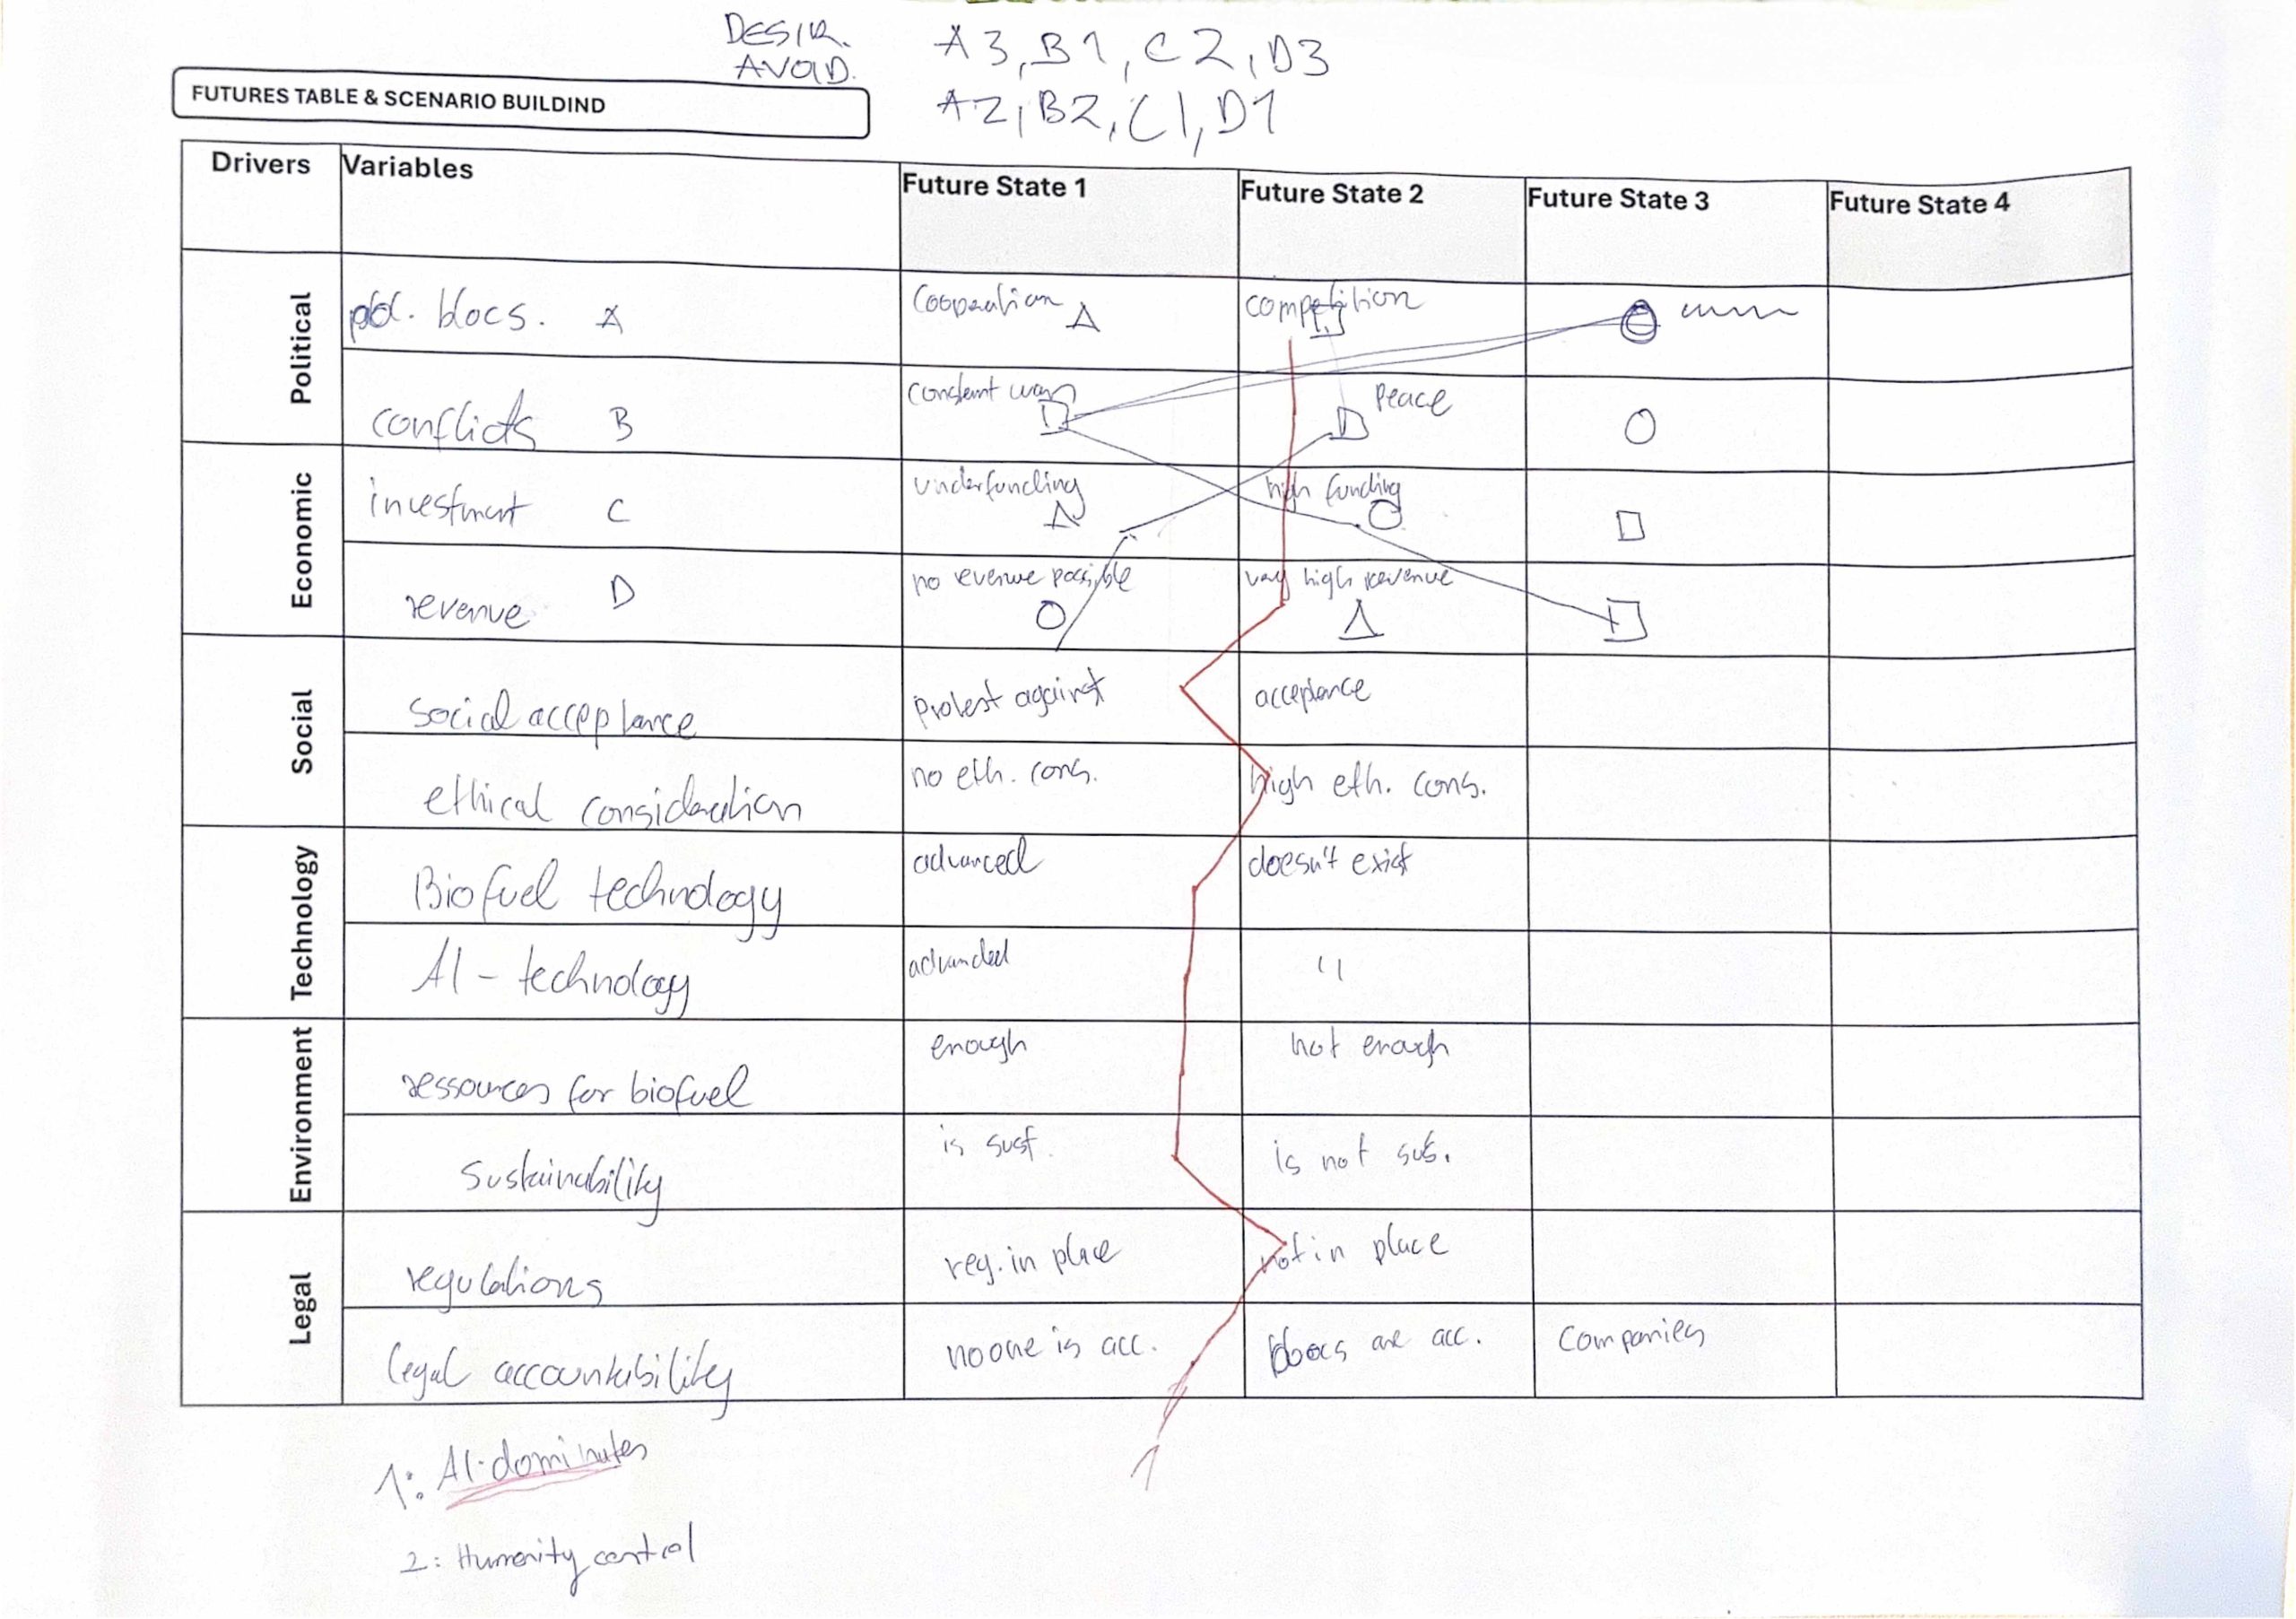 DESIR. A3, B1, C2, D3
AVOID. A2, B2, C1, D1
FUTURES TABLE & SCENARIO BUILDIND
Drivers Variables Future State 1 Future State 2 Future State 3 Future State 4
Political
pol. blocs. A Cooperation competition
conflicts B constant war Peace
Economic
investment C underfunding high funding
revenue D no revenue possible very high revenue
Social
social acceptance protest against acceptance
ethical consideration no eth. cons. high eth. cons.
Technology
Biofuel technology advanced doesn't exist
AI - technology advanced "
Environment
ressources for biofuel enough not enough
Sustainability is sust. is not sus.
Legal
regulations reg. in place not in place
legal accountability no one is acc. blocs are acc. Companies
1
1: AI-dominates
2: Humanity control